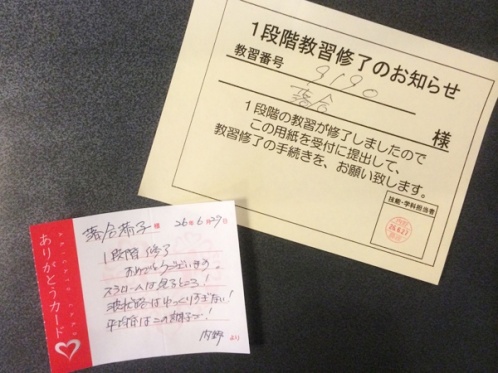 1段階教習修了のお知らせ
教習番号 9190
落合 様
1段階の教習が修了しましたので
この用紙を受付に提出して、
教習修了の手続きを、お願い致します。
技能・学科担当者
ありがとうカード
様 26年6月29日
1段階修了
おめでとうございます。
スラロームは見るところ!
波状路はゆっくりすぎない!
平均台はこの調子で!
より